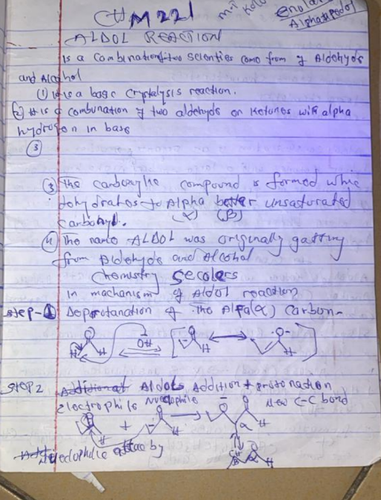 CHM 221
ALDOL REACTION
is a Combination two scienties come from of Aldehyde
and Alcohol
(1) It is a basic Crytalysis reaction.
(2) It is a combunation of two aldehyde or Ketones with alpha
hydrogen in base
(3)
(3) The carboxylic compound is formed whie
dehydrates to Alpha better unsaturated
(α) (β)
Carbonyl.
(4) The name ALDOL was originally
from Aldehyde and Alcohol
Chemistry
in mechanism of Aldol reaction
Step-1 Deprotanation of the Alpa(α) Carbon-
H
OH
H
H
STEP 2 Aldol Addition + protonation
electrophile Nucleophile New C-C bond
+
H
H
α
H
by